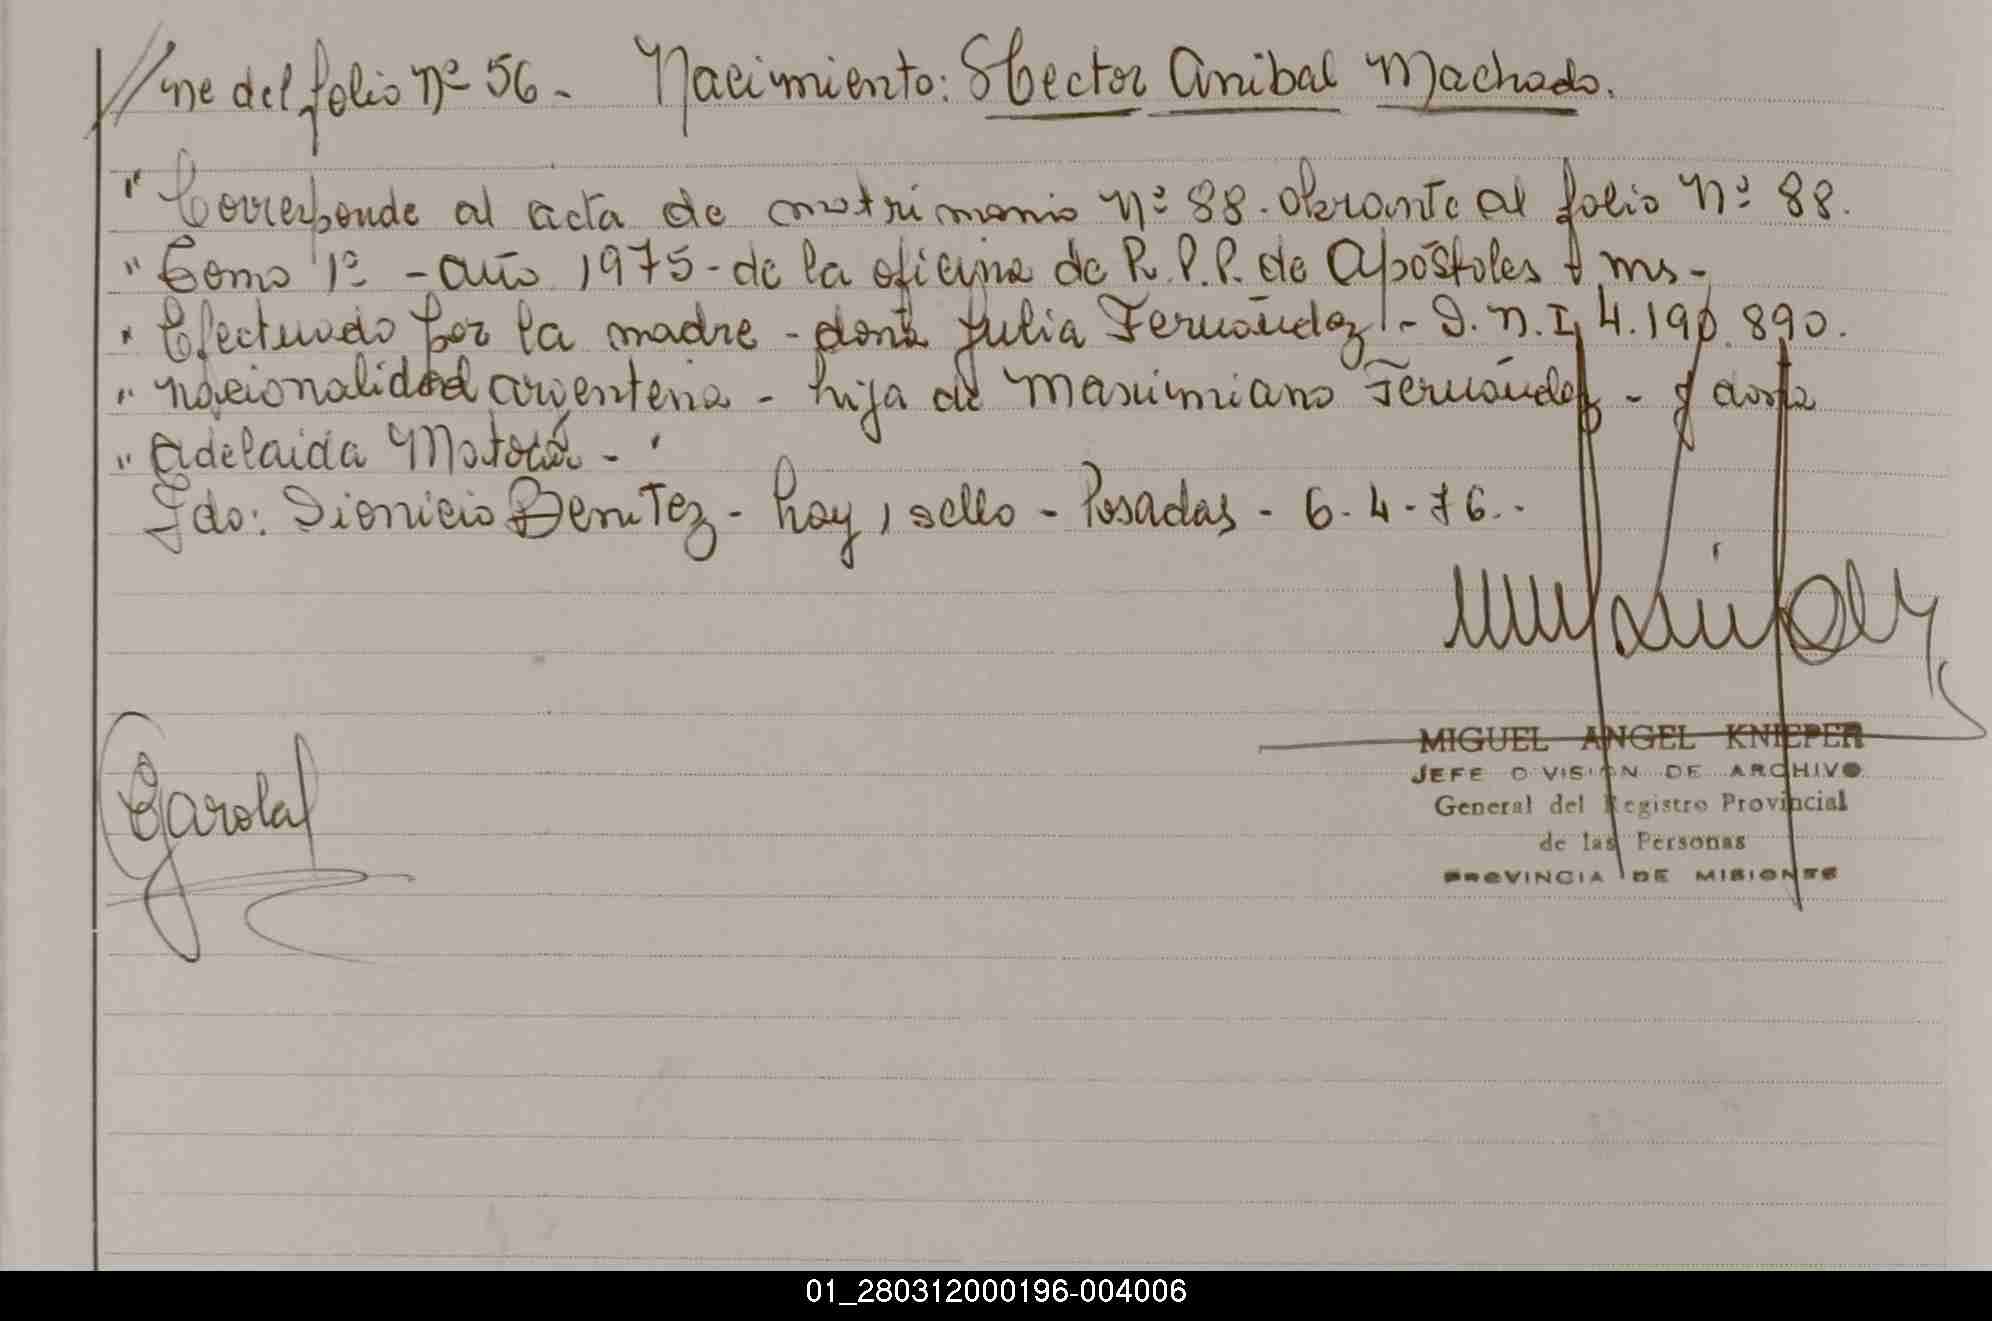 //ne del folio nº 56 - Nacimiento: Hector Anibal Machado.
" Corresponde al acta de matrimonio nº 88. obrante al folio nº 88.
" Tomo 1º - año 1975 - de la oficina de R.P.P. de Apóstoles Mns -
" Efectuado por la madre - doña Julia Fernández - D.N.I. 4.190.890.
" nacionalidad argentina - hija de Maximiano Fernández - y doña
" Adelaida -"
Fdo: Dionicio Benitez - hay, sello - Posadas - 6-4-76.-
MIGUEL ANGEL KNIEPER
JEFE DIVISION DE ARCHIVO
General del Registro Provincial
de las Personas
PROVINCIA DE MISIONES
01_280312000196-004006